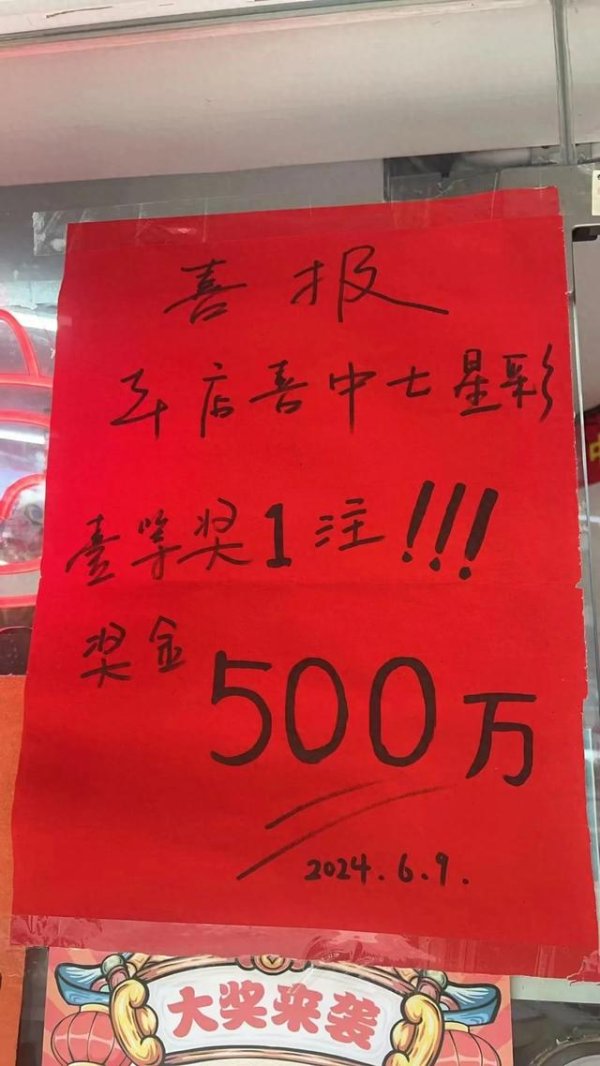 喜报
本店喜中七星彩
壹等奖1注!!!
奖金
500万
2024.6.9.
大奖来袭